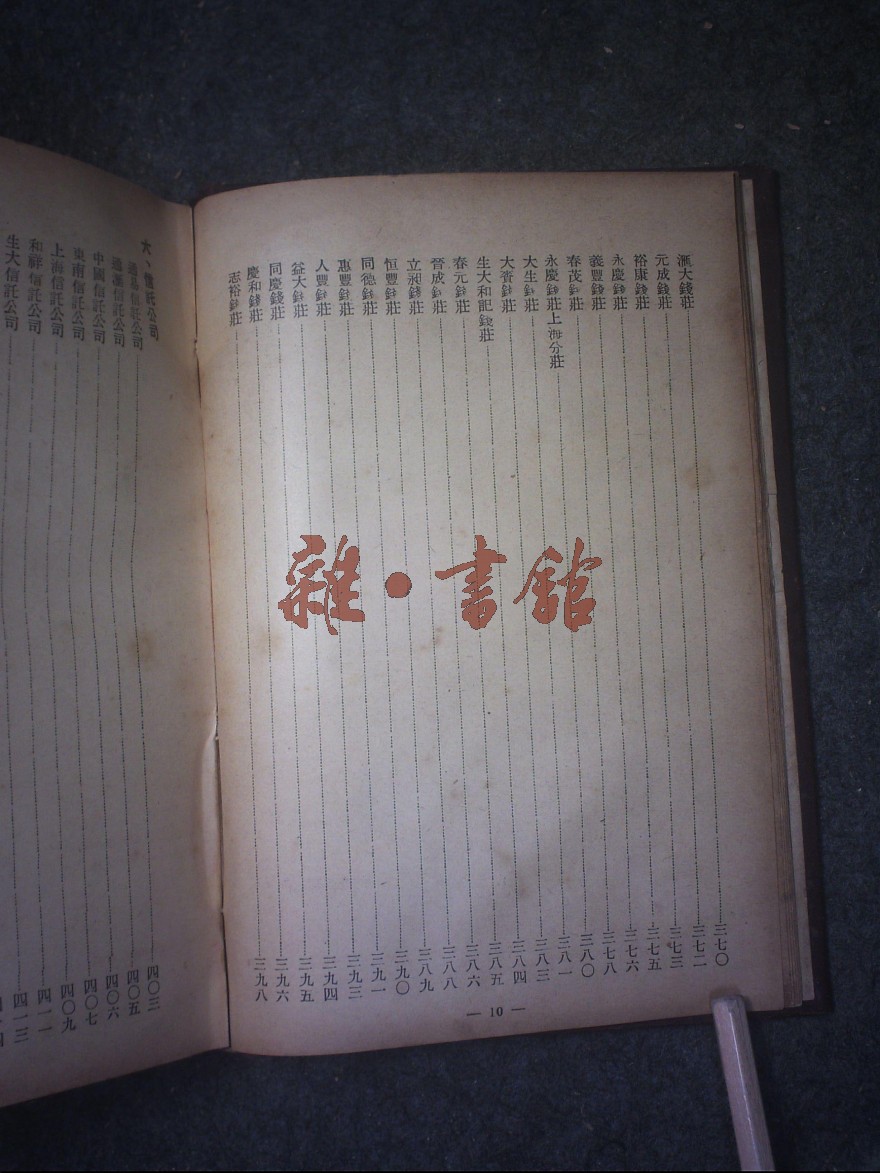 滙大錢莊 三七〇
元成錢莊 三七二
裕康錢莊 三七三
永慶錢莊 三七五
義豐錢莊 三七六
春茂錢莊 三七八
永慶錢莊上海分莊 三八〇
大生錢莊 三八一
大賚錢莊 三八三
生大和記錢莊 三八四
春元錢莊 三八五
晉成錢莊 三八六
立昶錢莊 三八八
恒豐錢莊 三八九
同德錢莊 三九〇
惠豐錢莊 三九一
人豐錢莊 三九三
益大錢莊 三九四
同慶錢莊 三九五
慶和錢莊 三九六
志裕錢莊 三九八
— 10 —
六、信託公司
通易信託公司 四〇三
通滙信託公司 四〇五
中國信託公司 四〇六
東南信託公司 四〇七
上海信託公司 四〇九
和祥信託公司 四一一
生大信託公司 四一三
雜•書館